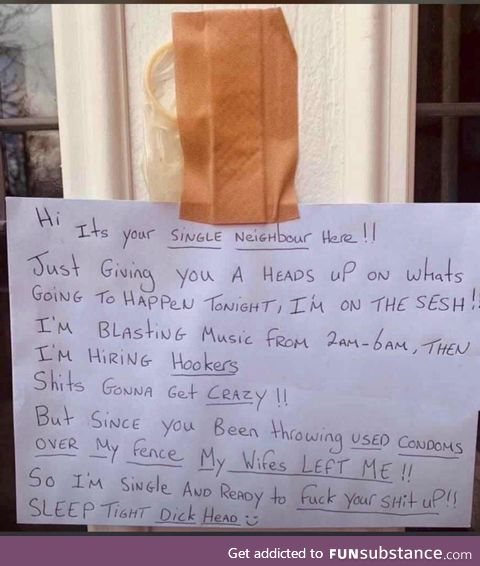 Hi
Its your SINGLE NEIGHbour Here!!
Just Giving you A HEADS UP ON whats
GOING TO HAPPEN TONIGHT, I'M ON THE SESH!!
I'M BLASTING Music FROM 2AM-6AM, THEN
I'M HIRING Hookers
Shits GONNA Get CRAZY!!
But SINCE you Been throwing USED CONDOMS
OVER My Fence My Wifes LEFT ME!!
So I'm SINGLE AND READY to Fuck Your SHIT UP!!
SLEEP TIGHT Dick HEAD
Get addicted to FUNsubstance.com